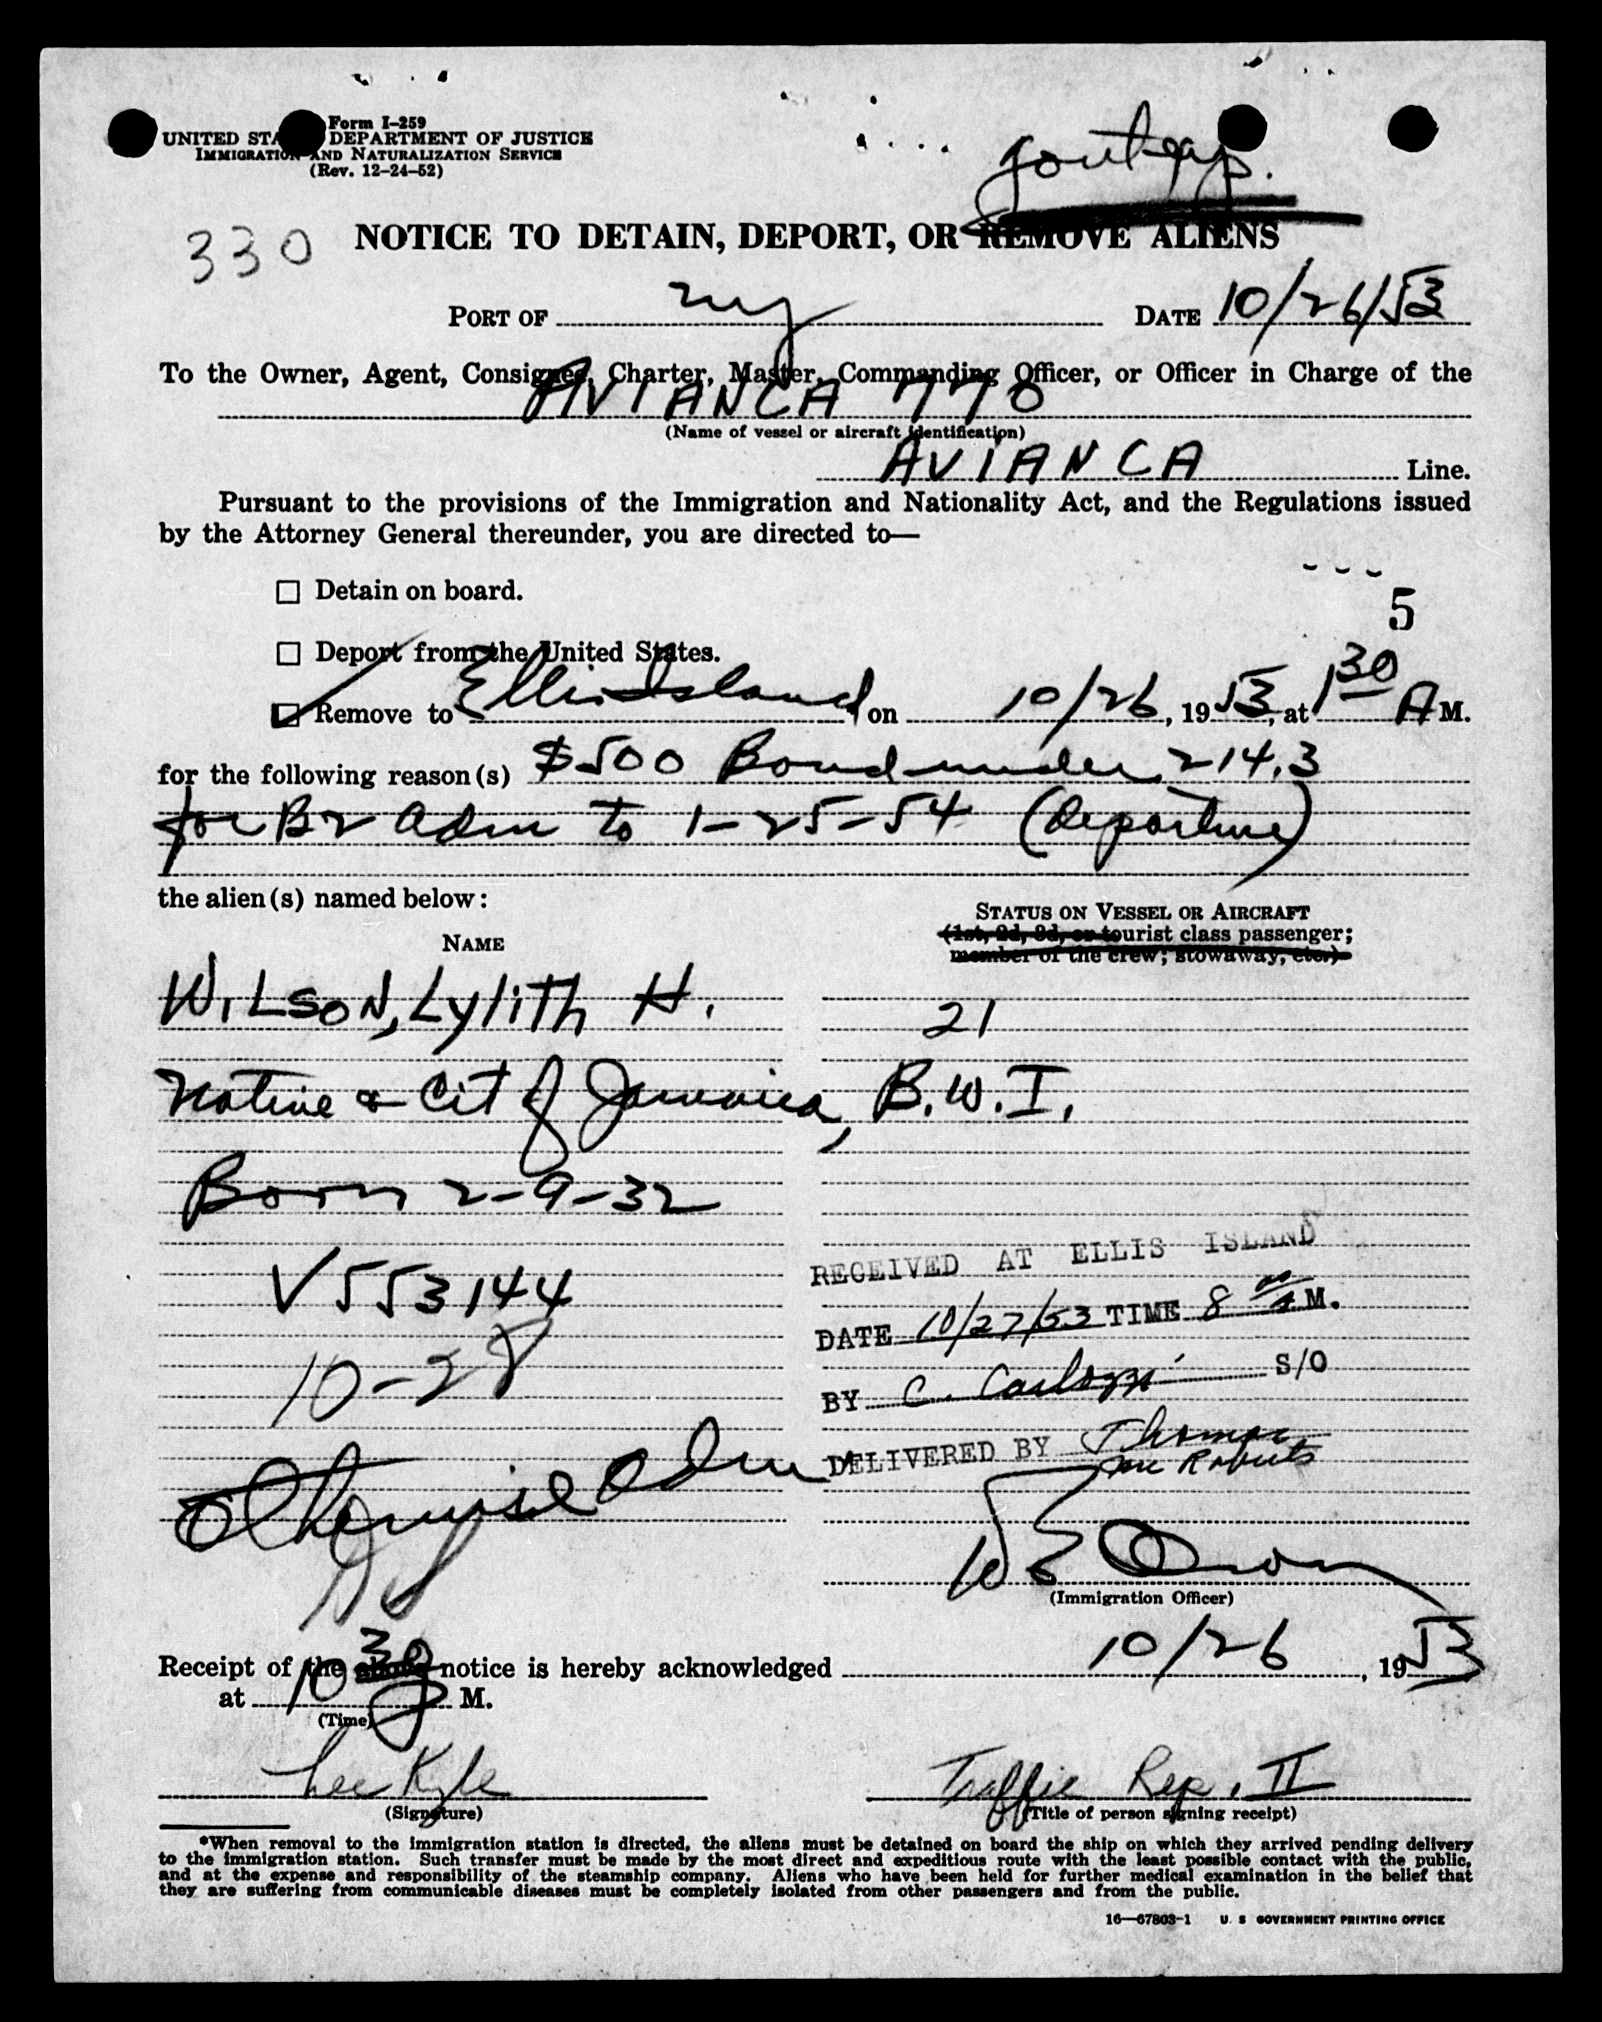 Form I-259
UNITED STA DEPARTMENT OF JUSTICE
IMMIGRATION AND NATURALIZATION SERVICE
(Rev. 12-24-52)
330
NOTICE TO DETAIN, DEPORT, OR REMOVE ALIENS
PORT OF ny DATE 10/26/53
To the Owner, Agent, Consignee, Charter, Master, Commanding Officer, or Officer in Charge of the
AVIANCA 770
(Name of vessel or aircraft identification)
AVIANCA Line.
Pursuant to the provisions of the Immigration and Nationality Act, and the Regulations issued
by the Attorney General thereunder, you are directed to—
☐ Detain on board.
5
☐ Deport from the United States.
☑ Remove to Ellis Island on 10/26, 1953, at 1 30 A M.
for the following reason(s) $500 Bond under 214.3
for B2 adm to 1-25-54 (departure)
the alien(s) named below:
STATUS ON VESSEL OR AIRCRAFT
NAME
(1st, 2d, 3d, or tourist class passenger;
member of the crew; stowaway, etc.)
WILSON, Lylith H. 21
Native & Cit of Jamaica, B.W.I.
Born 2-9-32
RECEIVED AT ELLIS ISLAND
V553144
DATE 10/27/53 TIME 8 00 A M.
10-28
BY C. Carlozzi S/O
DELIVERED BY Thomas
Mc Roberts
Otherwise Adm
(Immigration Officer)
10/26, 1953
Receipt of the above notice is hereby acknowledged
at 10 30 M.
(Time)
Lee Kyle Traffic Rep. II
(Signature) (Title of person signing receipt)
*When removal to the immigration station is directed, the aliens must be detained on board the ship on which they arrived pending delivery
to the immigration station. Such transfer must be made by the most direct and expeditious route with the least possible contact with the public,
and at the expense and responsibility of the steamship company. Aliens who have been held for further medical examination in the belief that
they are suffering from communicable diseases must be completely isolated from other passengers and from the public.
16—67803-1 U. S GOVERNMENT PRINTING OFFICE